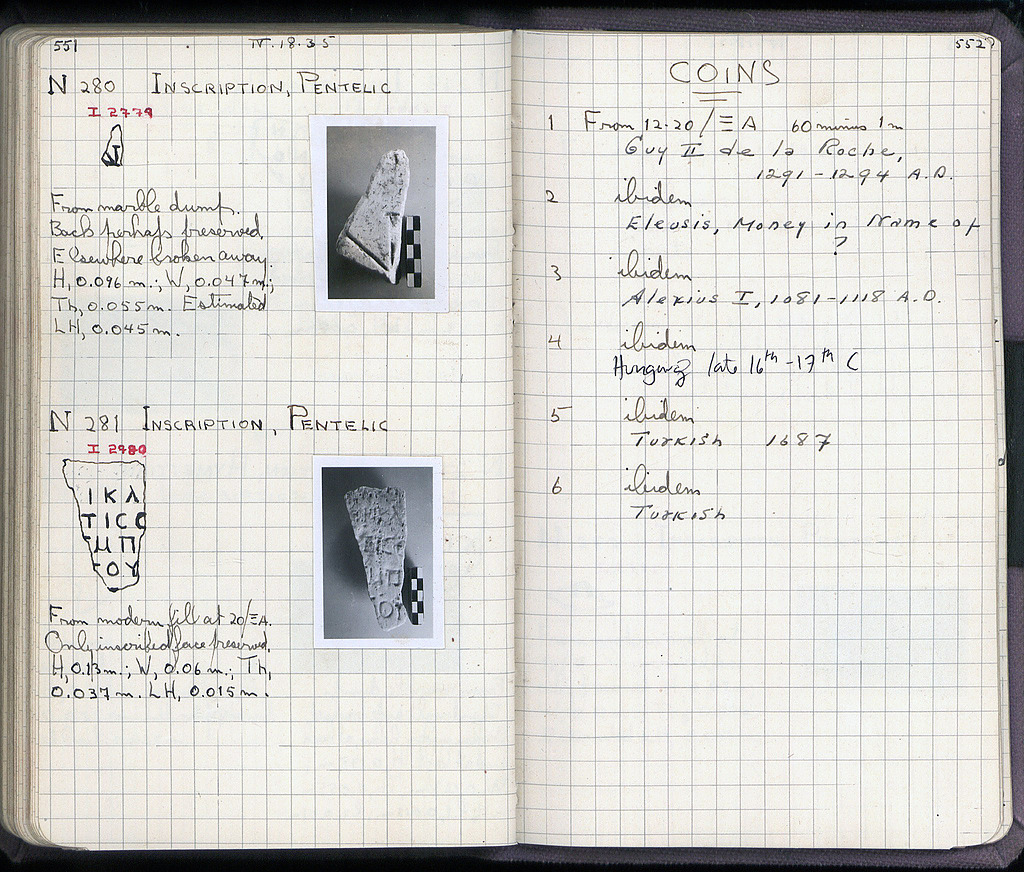 551
IV.18.35
N 280 INSCRIPTION, PENTELIC
I 2779
From marble dump.
Back perhaps preserved.
Elsewhere broken away.
H, 0.096 m.; W, 0.047 m.;
Th, 0.055 m. Estimated
LH, 0.045 m.
N 281 INSCRIPTION, PENTELIC
I 2780
ΙΚΛ
ΤΙCC
ΜΠ
ΟΥ
From modern fill at 20/ΞΑ.
Only inscribed face preserved.
H, 0.13 m.; W, 0.06 m.; Th,
0.037 m. LH, 0.015 m.
552
COINS
1 From 12-20/ΞΑ 60 minus 1m
Guy II de la Roche,
1291-1294 A.D.
2 ibidem
Eleusis, Money in Name of
?
3 ibidem
Alexius I, 1081-1118 A.D.
4 ibidem
Hungary late 16th-17th C
5 ibidem
Turkish 1687
6 ibidem
Turkish